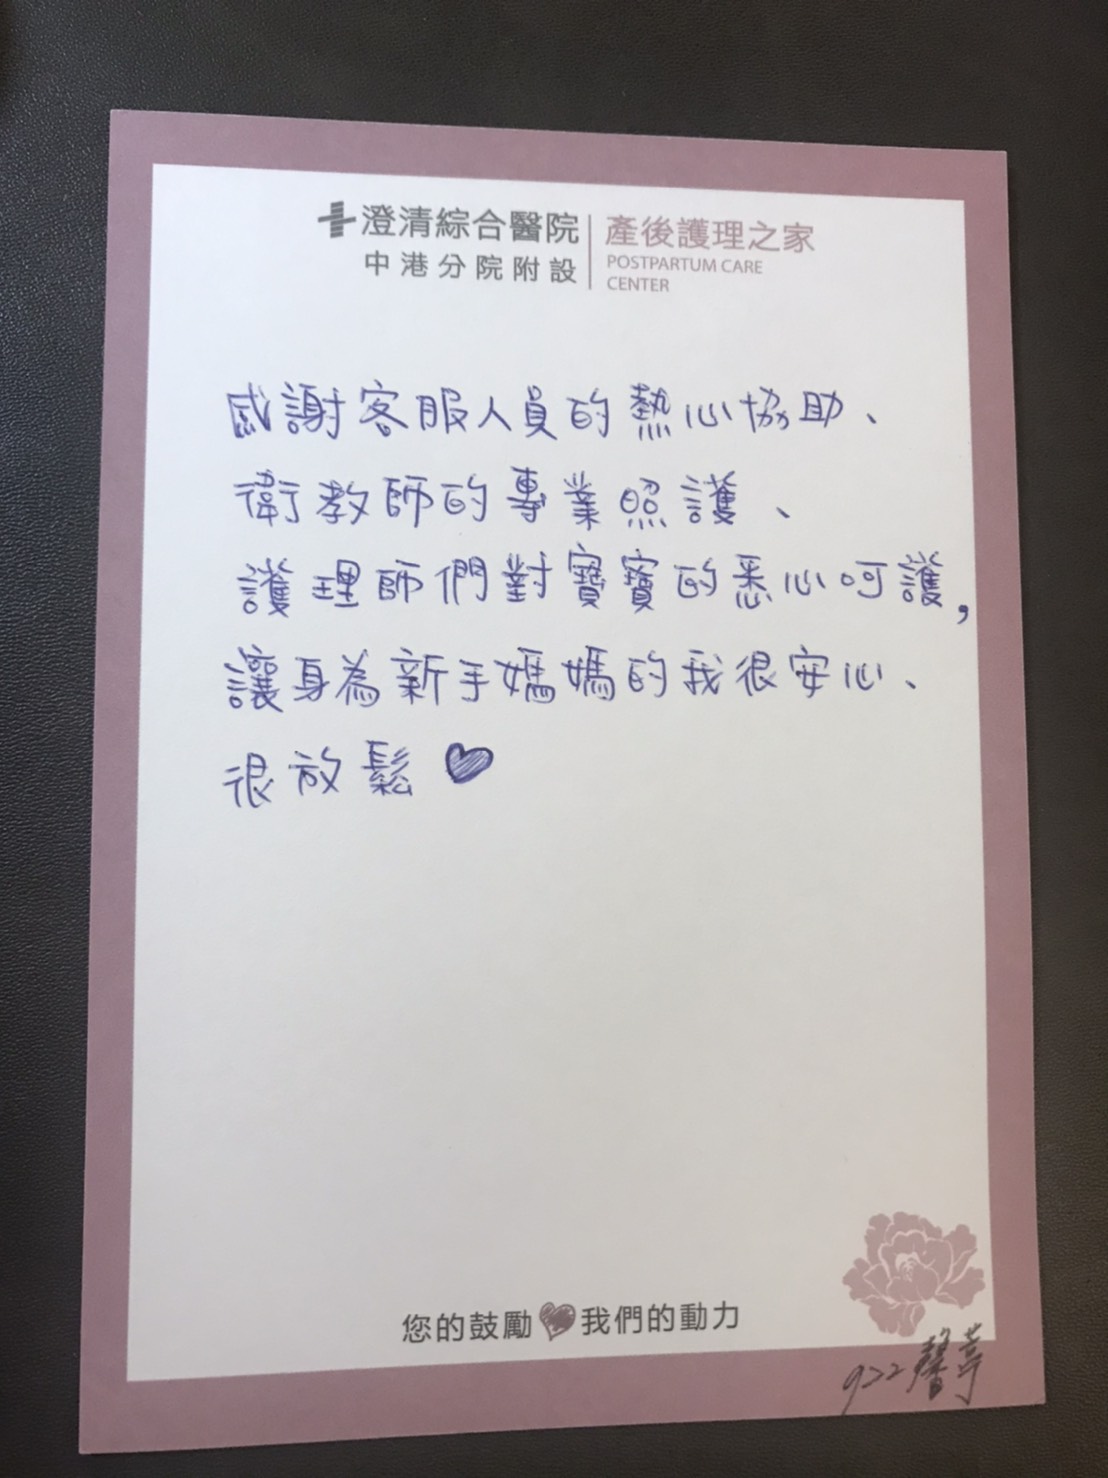 澄清綜合醫院
中港分院附設
產後護理之家
POSTPARTUM CARE
CENTER
感謝客服人員的熱心協助、
衛教師的專業照護、
護理師們對寶寶的悉心呵護,
讓身為新手媽媽的我很安心、
很放鬆♥
您的鼓勵♥我們的動力
922馨葶